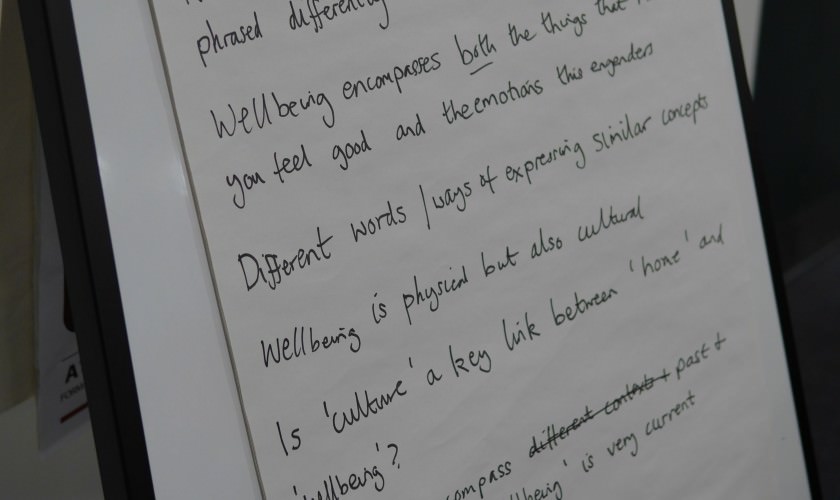 phrased differently
Wellbeing encompasses both the things that
you feel good and the emotions this engenders
Different words / ways of expressing similar concepts
Wellbeing is physical but also cultural
Is 'culture' a key link between 'home' and
'wellbeing'?
compass different contexts + past +
'wellbeing' is very current
A